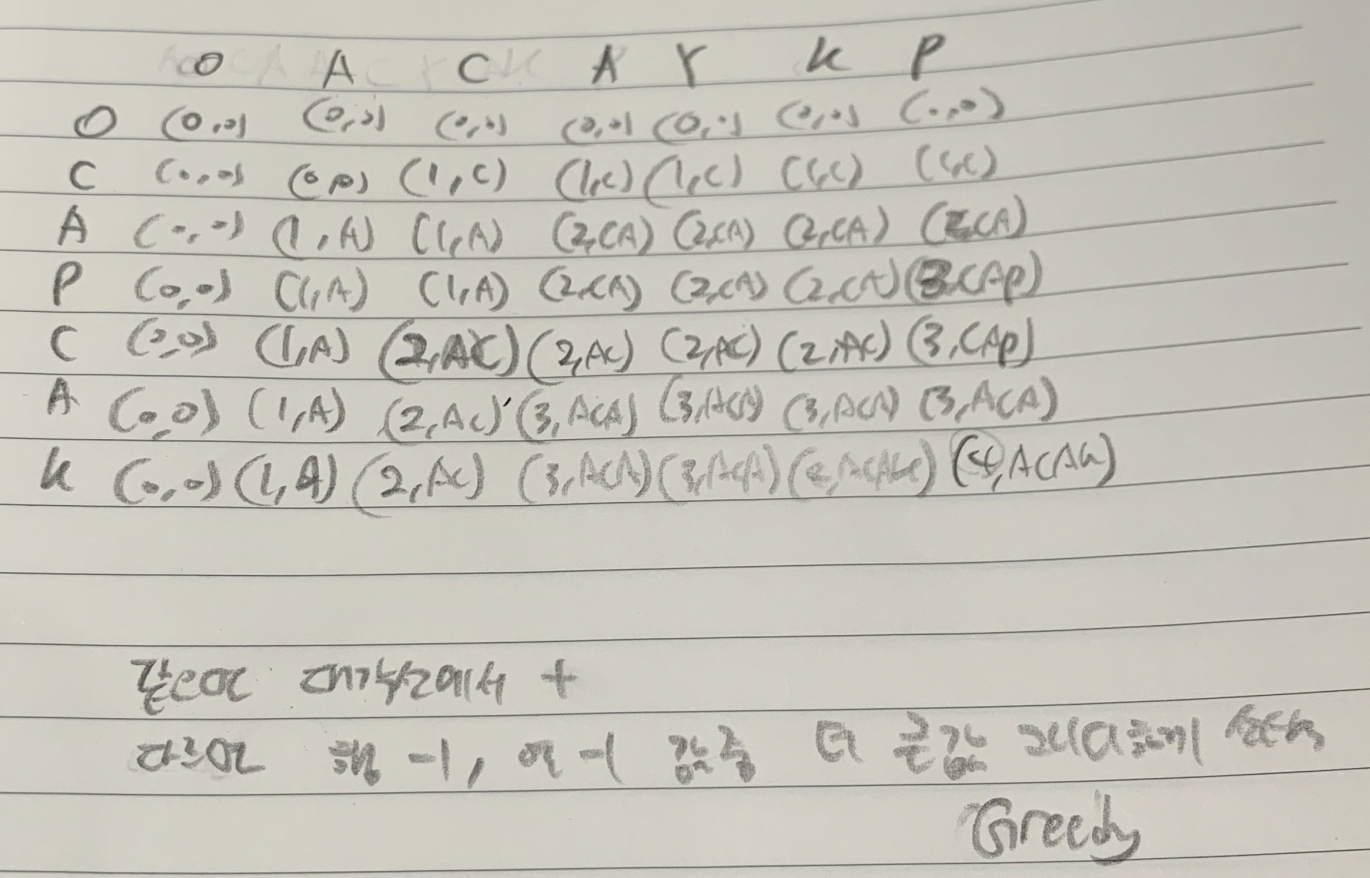 O A C A Y K P
O (0,0) (0,0) (0,0) (0,0) (0,0) (0,0) (0,0)
C (0,0) (0,0) (1,C) (1,C) (1,C) (1,C) (1,C)
A (0,0) (1,A) (1,A) (2,CA) (2,CA) (2,CA) (2,CA)
P (0,0) (1,A) (1,A) (2,CA) (2,CA) (2,CA) (3,CAP)
C (0,0) (1,A) (2,AC) (2,AC) (2,AC) (2,AC) (3,CAP)
A (0,0) (1,A) (2,AC) (3,ACA) (3,ACA) (3,ACA) (3,ACA)
K (0,0) (1,A) (2,AC) (3,ACA) (3,ACA) (4,ACAK) (4,ACAK)
같으면 대각선에서 +
다르면 행 -1, 열 -1 값중 더 큰값 그리디하게 선택
Greedy